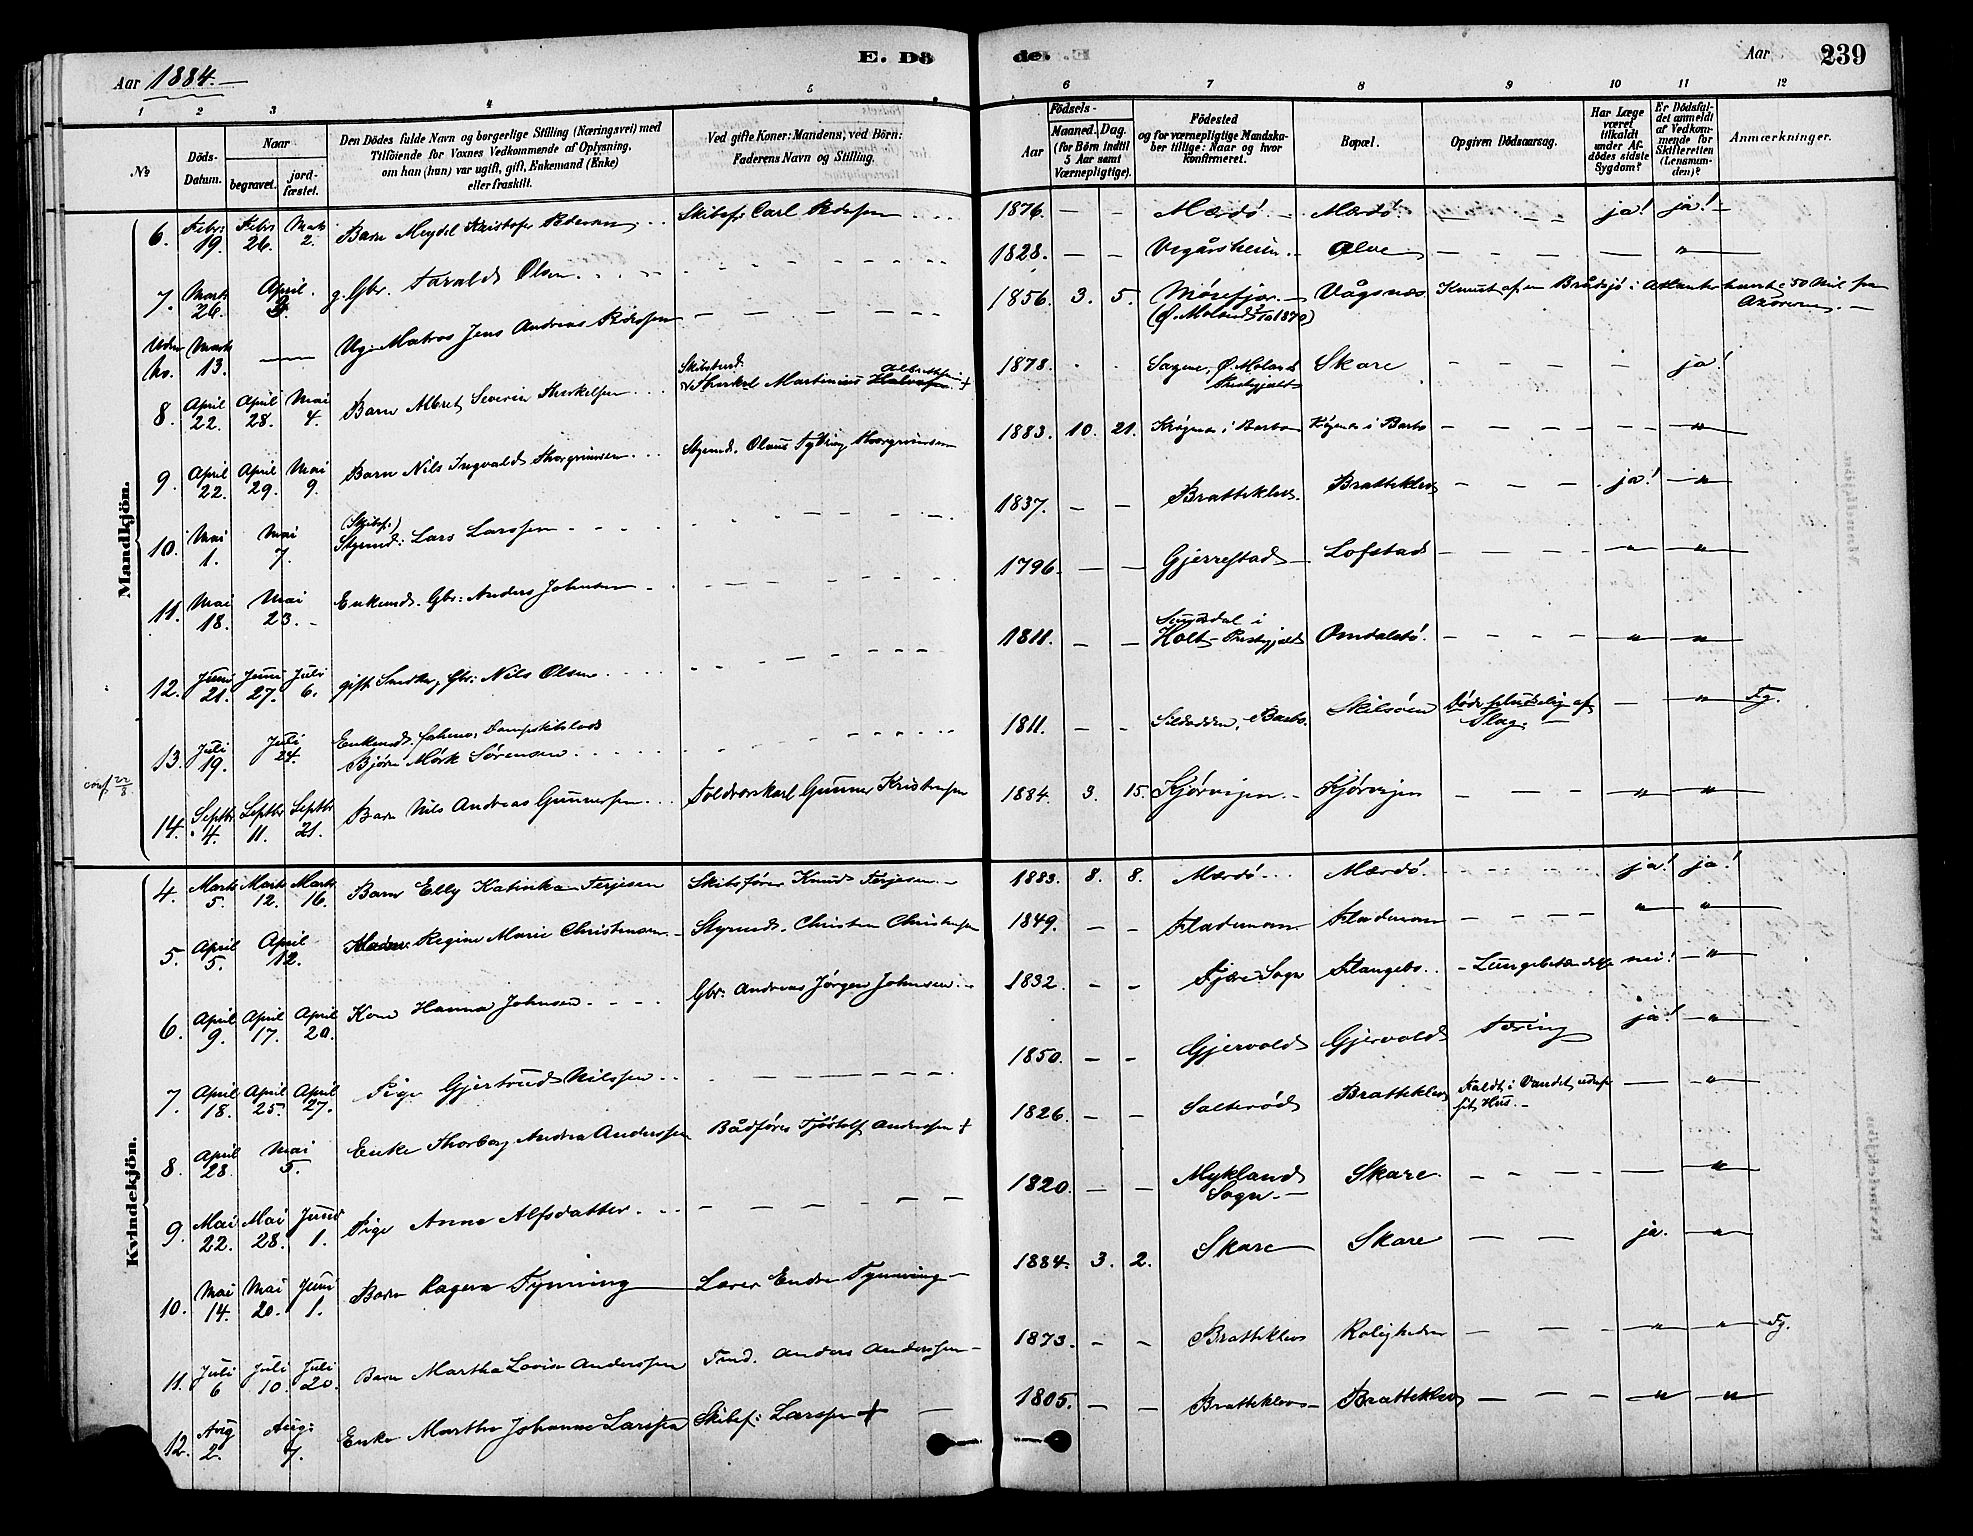 E. Dö de.
Aar 1884.
Aar 239
1 2 3 4 5 6 7 8 9 10 11 12
No
Döds-Datum.
Naar
begravet.
jord-fæstet.
Den Dödes fulde Navn og borgerlige Stilling (Næringsvei) med
Tilföiende for Voxnes Vedkommende af Oplysning,
om han (hun) var ugift, gift, Enkemand (Enke)
eller fraskilt.
Ved gifte Koner: Mandens, ved Börn:
Faderens Navn og Stilling.
Födsels-
Aar
Maaned. Dag.
(for Börn indtil
5 Aar samt
Værnepligtige).
Födested
og for værnepligtige Mandska-
ber tillige: Naar og hvor
konfirmeret.
Bopæl.
Opgiven Dödsaarsag.
Har Læge
været
tilkaldt
under Af-
dödes sidste
Sygdom?
Er Dödsfal-
det anmeldt
af Vedkom-
mende for
Skifteretten
(Lensman-
den)?
Anmærkninger.
Mandkjön.
6. Febr 19. Febr 26. Mart 2. Barn Meydel Kristofer Pedersen Skibsf. Carl Pedersen 1876. — — Mærdö. Mærdö. ja! ja!
7. Marts 26. April 3. g. Gbr. Taralds Olsen 1828. — — Vegårsheien. Alve "
Uden No. Marts 13. — Ug. Matros Jens Andreas Pedersen 1856. 3. 5. Mörefjær. (Ø. Moland 1870) Vågsnæs Knust af en Brådsjö i Atlanterhavet c 50 Mil fra Azorerne.
8. April 22. April 28. Mai 4. Barn Albret Severin Therkelsen Therkel Martinius Halvorsen + 1878. Sagene, Ø. Molands Præstegjeld Skare ja!
9. April 22. April 29. Mai 9. Barn Nils Ingvald Thorgrimsen Styrmd. Olaus Thorgrimsen 1883. 10. 21. i Barbo i Barbo "
10. Mai 1. Mai 7. (Skibsf.) Styrmd: Lars Larssen 1837. — — Bratteklev. Bratteklev ja! "
11. Mai 18. Mai 23. Enkemd. Gbr: Anders Johnsen 1796. — — Gjerrestad Lofstad " "
12. Juni 21. Juni 27. Juli 6. gift Gbr: Nils Olsen 1811. — — Sundsdal i Holt Prestegjeld Omdalstö. " "
13. Juli 19. Juli 24. Enkemd. Dampskibslods Bjørn Mørk Sørensen 1811. — Barbo. Skilsöen Döde pludselig af Slag. — " Fg.
conf. 22/8.
14. Septbr 4. Septbr 11. Septbr 21. Barn Nils Andreas Gunnersen Toldroerskarl Gunner Kristensen 1884. 3. 15. Kjörvigen. Kjörvigen " "
Kvindekjön.
4. Marts 5. Marts 12. Marts 16. Barn Elly Katinka Terjesen Skibsfører Knud Terjesen 1883. 8. 8. Mærdö. Mærdö. ja! ja!
5. April 5. April 12. Regine Marie Christensen Styrmd. Christen Christensen 1849. — — Flademoen Flademoen " "
6. April 9. April 17. April 20. Kone Hanna Johnsen Gbr. Andreas Jørgen Johnsen 1832. — — Fjære Sogn Flangebo. Lungebetændelse nei! "
7. April 18. April 25. April 27. Pige Gjertrud Nilssen 1850. — — Gjervold Gjervold Tæring ja! "
8. April 28. Mai 5. Enke Thorborg Andrea Anderssen Bådfører Tjöstolf Anderssen + 1826. — — Salteröd Bratteklev Faldt i Vandet udenfor sit Hus. — "
9. Mai 22. Mai 28. Juni 1. Pige Anne Alfsdatter 1820. — — Myklands Sogn. Skare. — "
10. Mai 14. Mai 20. Juni 1. Barn Ragna Tynning Lærer Endre Tynning 1884. 3. 2. Skare Skare ja. "
11. Juli 6 Juli 10. Juli 20. Barn Martha Lovise Anderssen Tmd. Anders Anderssen 1873. — — Bratteklev Roligheden " " Fg.
12. Aug 2. Aug: 7. Enke Marthe Johanne Larssen Skibsf: Larssen + 1805. — — Bratteklev Bratteklev " "